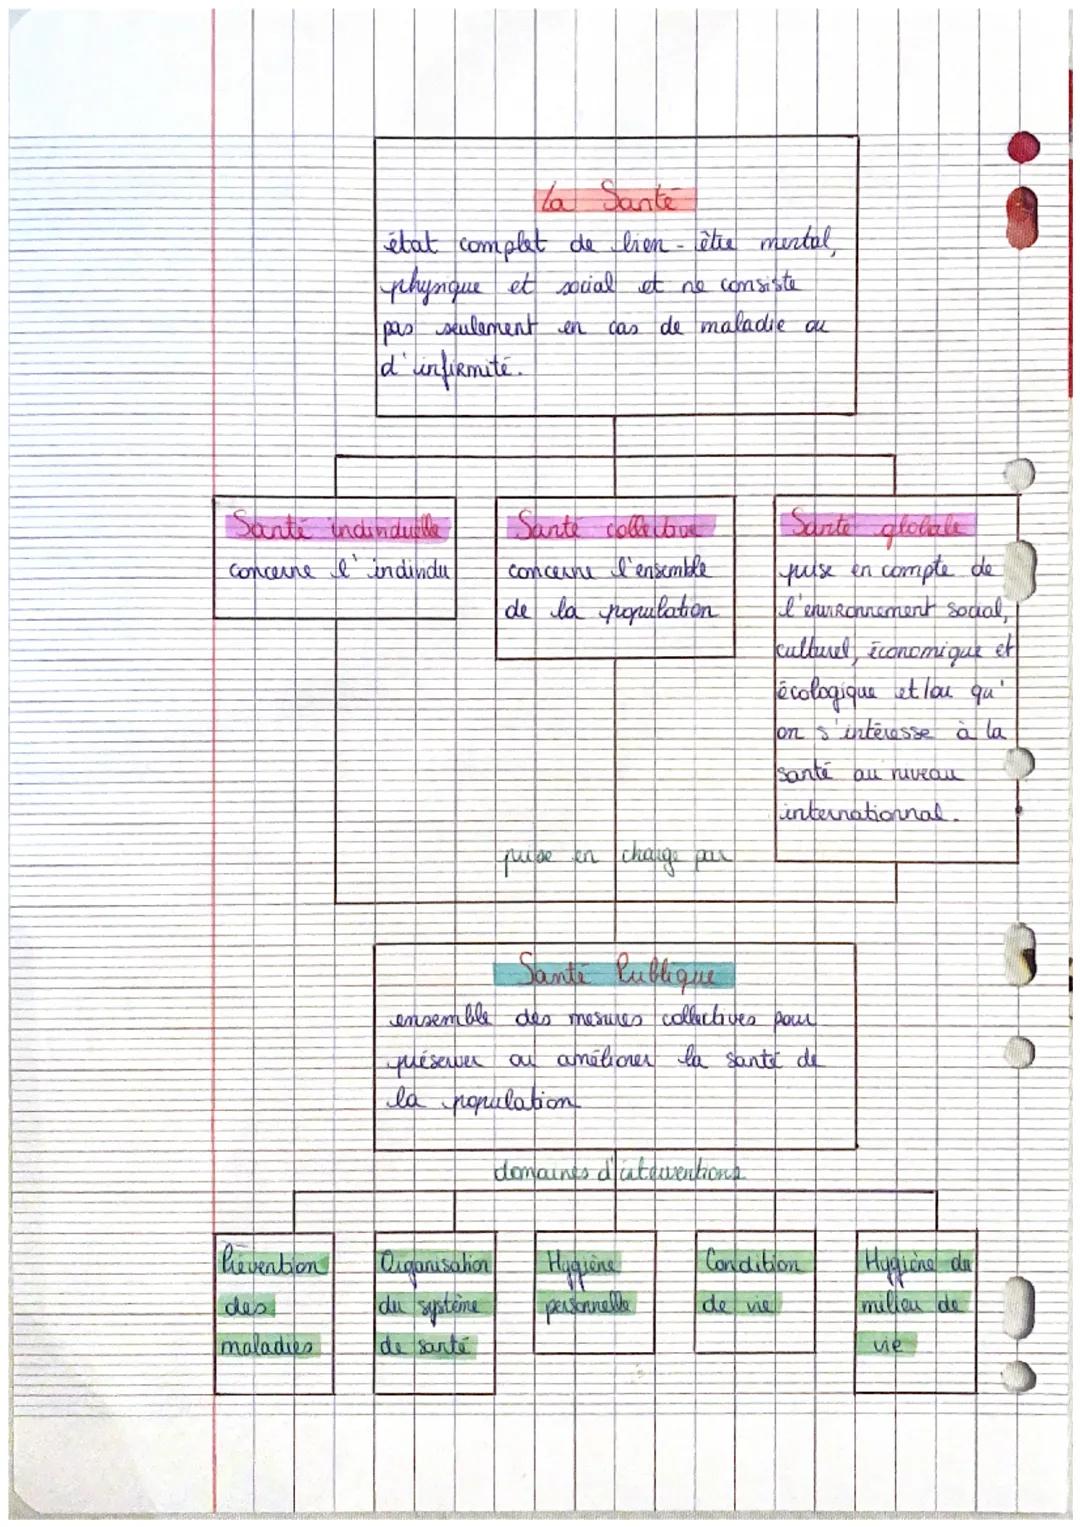 La Santé
état complet de bien-être mental,
physique et social et ne consiste
pas seulement en cas de maladie ou
d'infirmité.
Santé indinduelle
concerne l'indindu
Santé collective
concerne l'ensemble
de la population
Santé globale
prise en compte de
l'environnement social,
culturel, économique et
écologique et/ou qu'
on s'intéresse à la
santé au niveau
internationnal.
prise en charge par
Santé Publique
ensemble des mesures collectives pour
préserver ou améliorer la santé de
la population
domaines d'interventions
Prévention
des
maladies
Organisation
du système
de santé
Hygiène
personnelle
Condition
de vie
Hygiène du
milieu de
vie